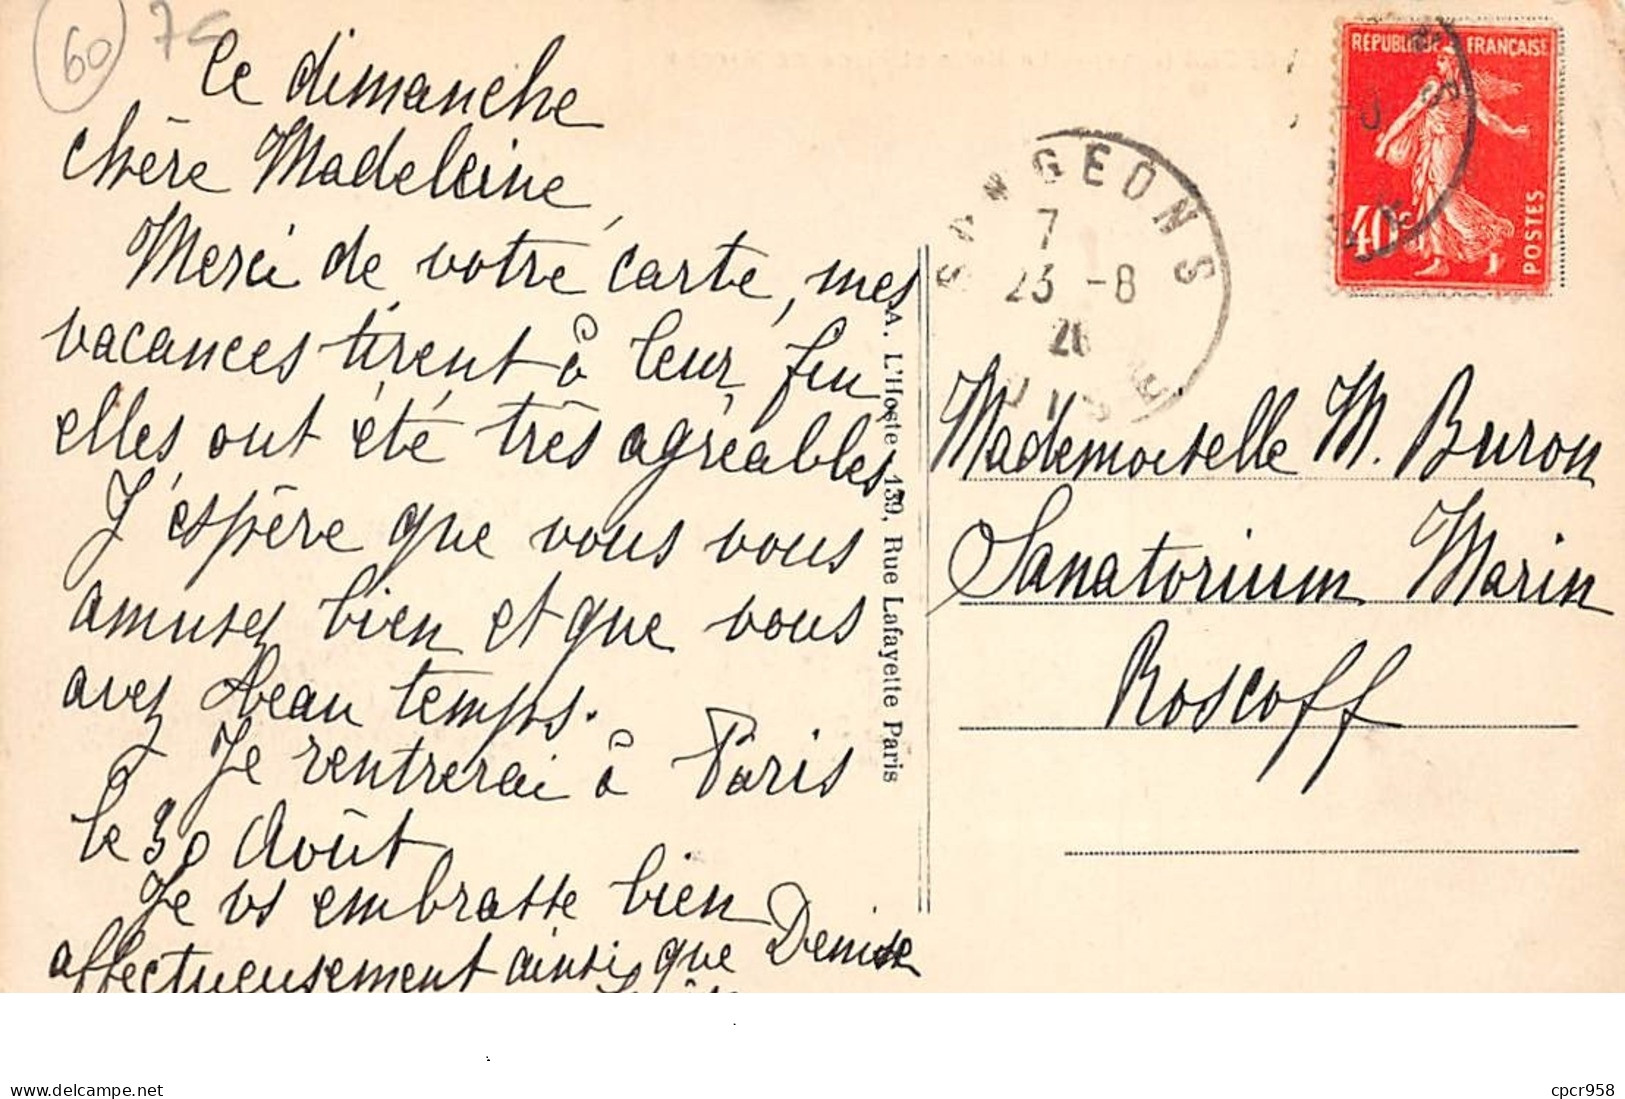 60
75
Ce dimanche
Chère Madeleine,
Merci de votre carte, mes
vacances tirent à leur fin,
elles ont été très agréables.
J'espère que vous vous
amusez bien et que vous
avez beau temps.
Je rentrerai à Paris
le 30 Août
Je vs embrasse bien
affectueusement ainsi que Denise
A. L'Hoste, 139, Rue Lafayette Paris
SONGEONS
7
23 -8
26
OISE
REPUBLIQUE FRANÇAISE
40c
POSTES
Mademoiselle M. Buron
Sanatorium Marin
Roscoff
www.delcampe.net
cpcr958